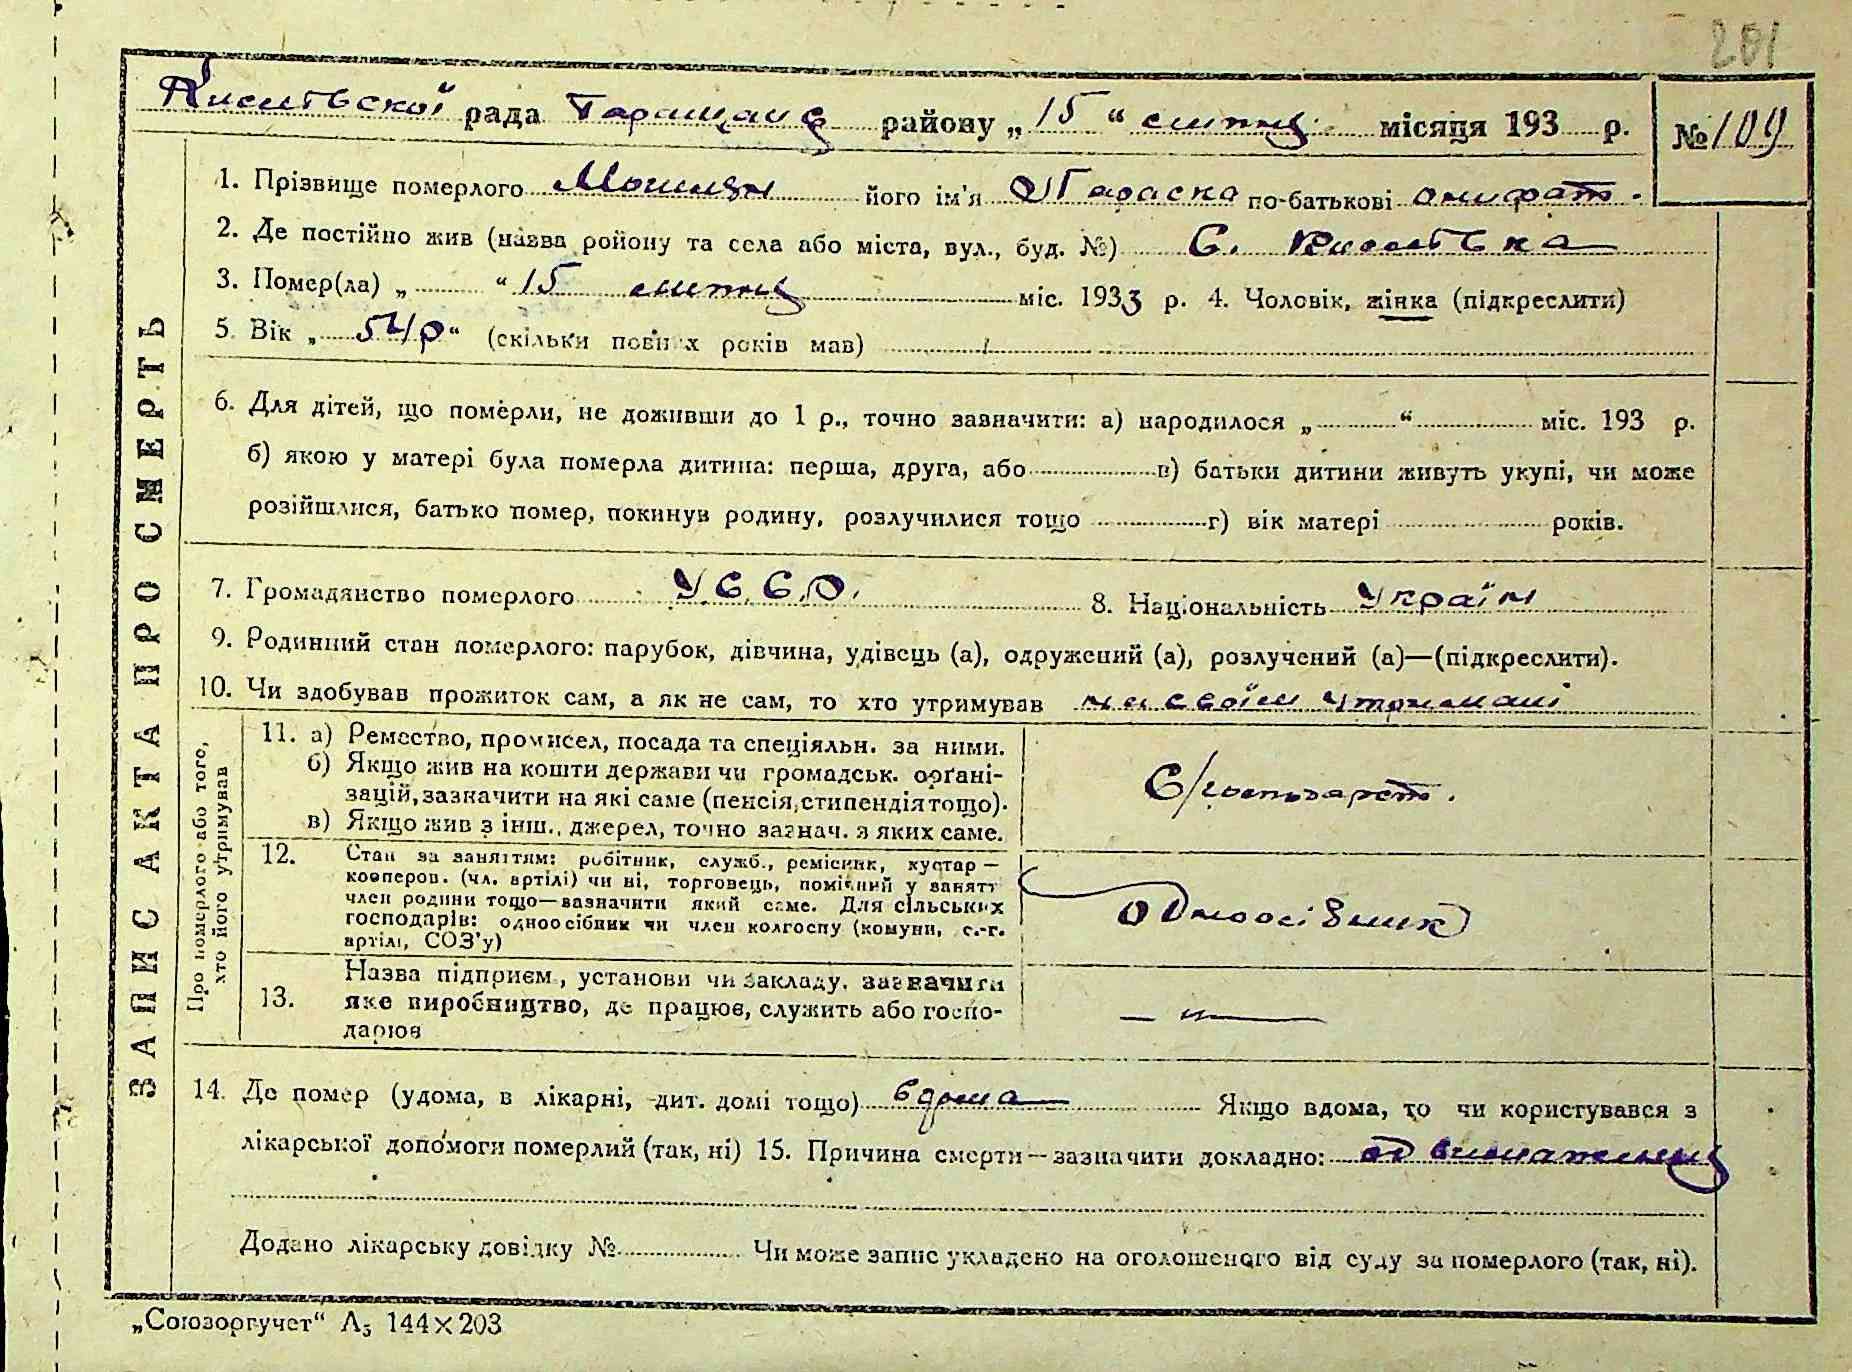 201
рада Таращанс району „ 15 “ липня місяця 193 р. № 109
ЗАПИС АКТА ПРО СМЕРТЬ
1. Прізвище померлого його ім'я Параска по-батькові
2. Де постійно жив (назва району та села або міста, вул., буд. №) С.
3. Помер(ла) „ “ 15 липня міс. 1933 р. 4. Чоловік, жінка (підкреслити)
5. Вік „ 54 р “ (скільки повних років мав)
6. Для дітей, що померли, не доживши до 1 р., точно зазначити: а) народилося „ “ міс. 193 р.
б) якою у матері була померла дитина: перша, друга, або в) батьки дитини живуть укупі, чи може
розійшлися, батько помер, покинув родину, розлучилися тощо г) вік матері років.
7. Громадянство померлого У.С.С.Р. 8. Національність Україн
9. Родинний стан померлого: парубок, дівчина, удівець (а), одружений (а), розлучений (а)—(підкреслити).
10. Чи здобував прожиток сам, а як не сам, то хто утримував на своїм утримані
Про померлого або того,
хто його утримував
11. а) Ремество, промисел, посада та спеціяльн. за ними.
б) Якщо жив на кошти держави чи громадськ. орґані-
зацій, зазначити на які саме (пенсія, стипендія тощо).
в) Якщо жив з інш., джерел, точно зазнач. з яких саме.
С/господарств.
12. Стан за заняттям: робітник, служб., ремісник, кустар —
кооперов. (чл. артілі) чи ні, торговець, помічний у занятт
член родини тощо—вазначити який саме. Для сільських
господарів: одноосібник чи член колгоспу (комуни, с.-г.
артілі, СОЗ'у)
одноосібник
13. Назва підприєм., установи чи закладу, зазначити
яке виробництво, де працює, служить або госпо-
дарює
— " —
14. Де помер (удома, в лікарні, дит. домі тощо) вдома Якщо вдома, то чи користувався з
лікарської допомоги померлий (так, ні) 15. Причина смерти—зазначити докладно: од
Додано лікарську довідку № Чи може запис укладено на оголошеного від суду за померлого (так, ні).
„Союзоргучет“ А₅ 144×203